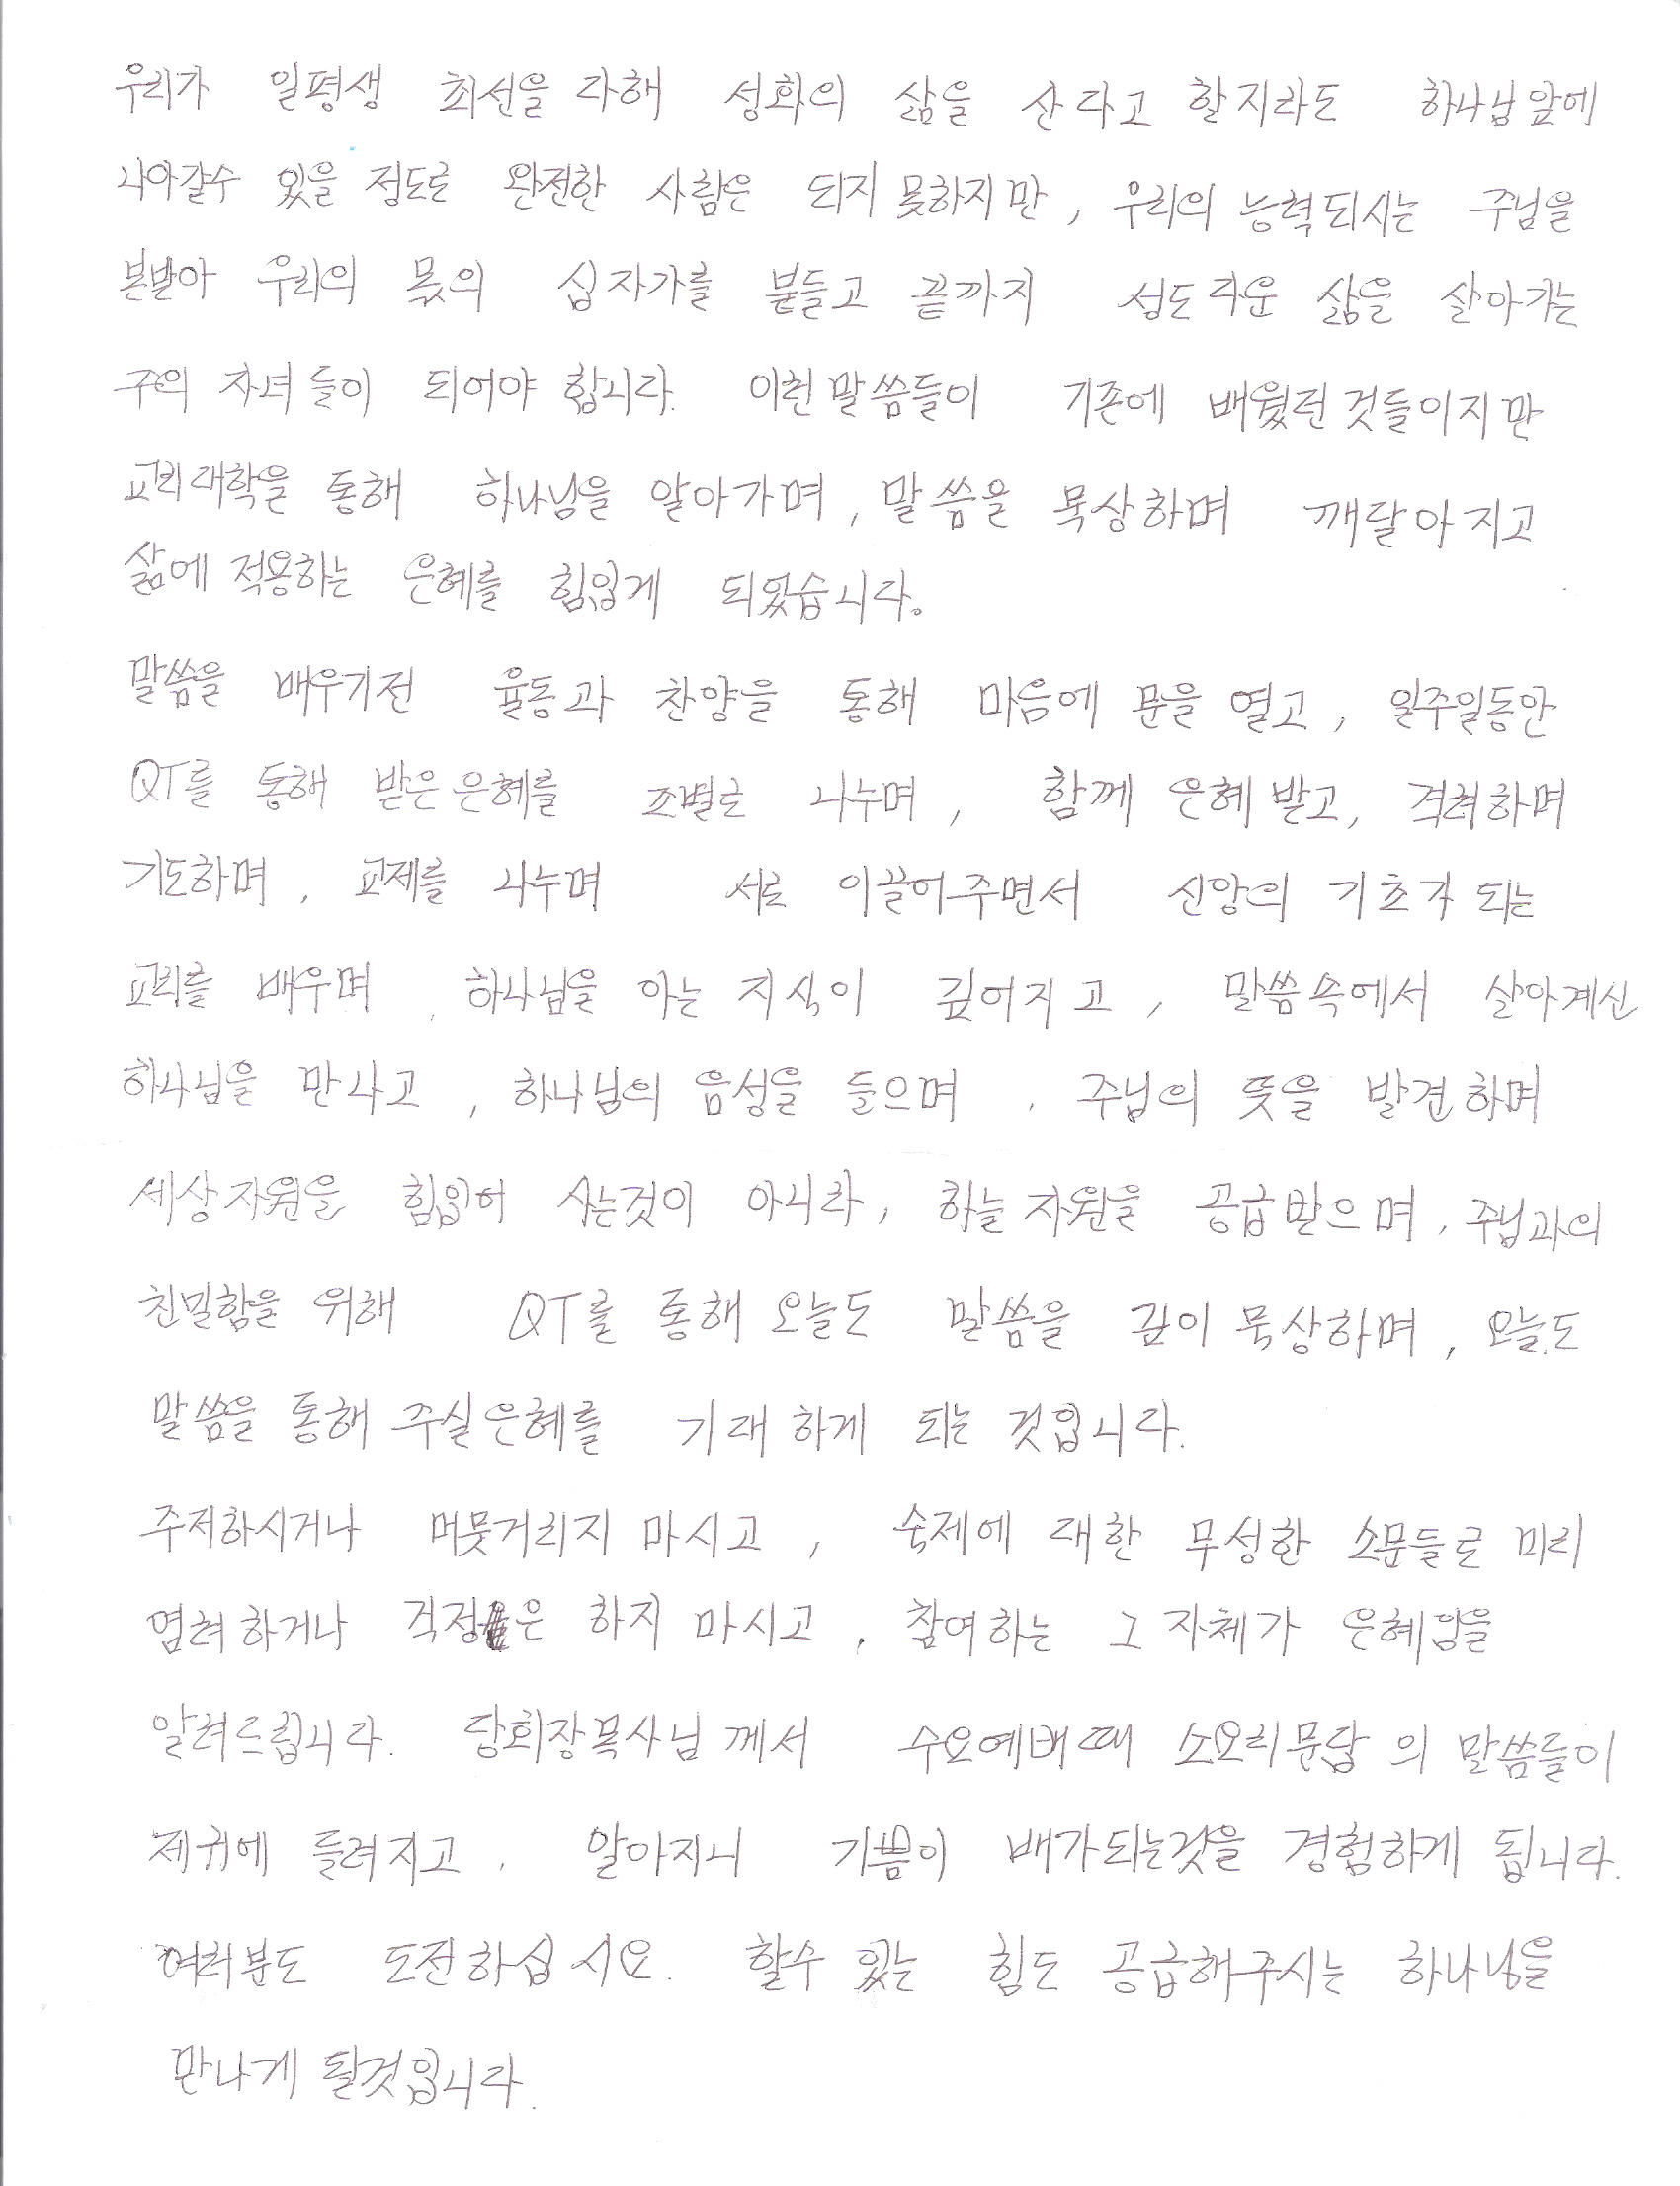 우리가 일평생 최선을 다해 성화의 삶을 산다고 할지라도 하나님앞에
나아갈수 있을 정도로 완전한 사람은 되지 못하지만, 우리의 능력되시는 주님을
본받아 우리의 몫의 십자가를 붙들고 끝까지 성도다운 삶을 살아가는
주의 자녀들이 되어야 합니다. 이런 말씀들이 기존에 배웠던 것들이지만
교리대학을 통해 하나님을 알아가며, 말씀을 묵상하며 깨달아지고
삶에 적용하는 은혜를 힘입게 되었습니다.
말씀을 배우기전 율동과 찬양을 통해 마음에 문을 열고, 일주일동안
QT를 통해 받은 은혜를 조별로 나누며, 함께 은혜 받고, 격려하며
기도하며, 교제를 나누며 서로 이끌어주면서 신앙의 기초가 되는
교리를 배우며, 하나님을 아는 지식이 깊어지고, 말씀속에서 살아계신
하나님을 만나고, 하나님의 음성을 들으며, 주님의 뜻을 발견하며
세상자원을 힘입어 사는것이 아니라, 하늘자원을 공급받으며, 주님과의
친밀함을 위해 QT를 통해 오늘도 말씀을 깊이 묵상하며, 오늘도
말씀을 통해 주실 은혜를 기대하게 되는 것입니다.
주저하시거나 머뭇거리지 마시고, 숙제에 대한 무성한 소문들로 미리
염려하거나 걱정은 하지 마시고, 참여하는 그 자체가 은혜임을
알려드립니다. 당회장목사님께서 수요예배때 소요리문답의 말씀들이
제귀에 들려지고, 알아지니 기쁨이 배가되는것을 경험하게 됩니다.
여러분도 도전하십시요. 할수 있는 힘도 공급해주시는 하나님을
만나게 될것입니다.